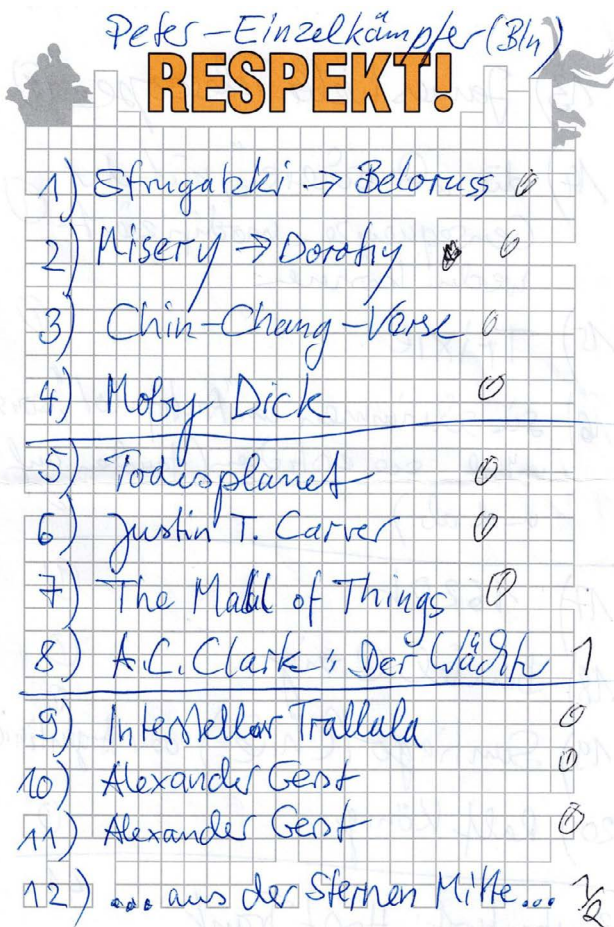 Peter-Einzelkämpfer (Bln)
RESPEKT!
1) Strugatzki → Beloruss 0
2) Misery → Dorothy 0
3) Chin-Chang-Varse 0
4) Moby Dick 0
5) Todesplanet 0
6) Justin T. Carver 0
7) The Maul of Things 0
8) A.C. Clark: Der Wächter 1
9) Interstellar Trallala 0
10) Alexander Gerst 0
11) Alexander Gerst 0
12) ... aus der Sternen Mitte... 1/2